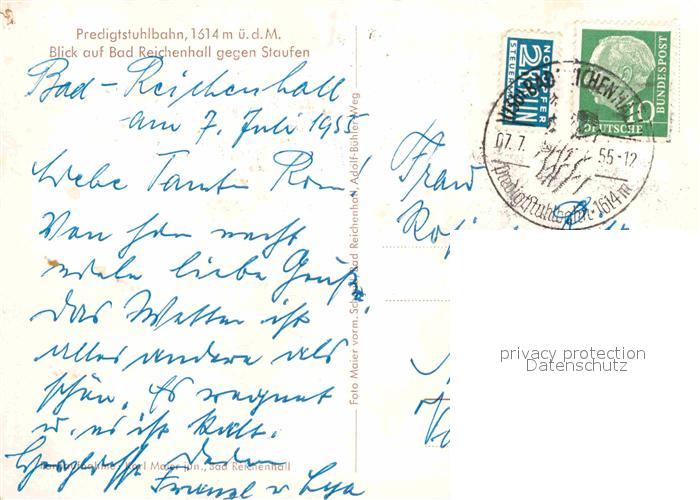 Predigtstuhlbahn, 1614 m ü. d. M.
Blick auf Bad Reichenhall gegen Staufen
Bad-Reichenhall
am 7. Juli 1955
Liebe Tante
Von hier recht
viele liebe Grüße
das Wetter ist
alles andere als
schön. Es regnet
u. es ist kalt.
Franzl u.
Karl Maier jun., Bad Reichenhall
Foto Maier vorm. Bad Reichenhall, Adolf-Bühler-Weg
NOTOPFER
2 BERLIN
STEUERMARKE
10
DEUTSCHE
BUNDESPOST
BAD REICHENHALL
07.7. 55-12
Predigtstuhlbahn-1614 m
Frau
privacy protection
Datenschutz